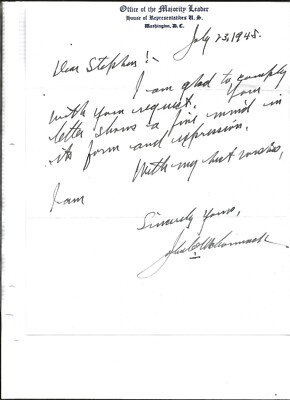 Office of the Majority Leader
House of Representatives U. S.
Washington, D. C.
July 23, 1945.
Dear Stephen:-
I am glad to comply
with your request. Your
letter shows a fine mind in
its form and expression.
With my best wishes,
I am
Sincerely yours,
John W. McCormack